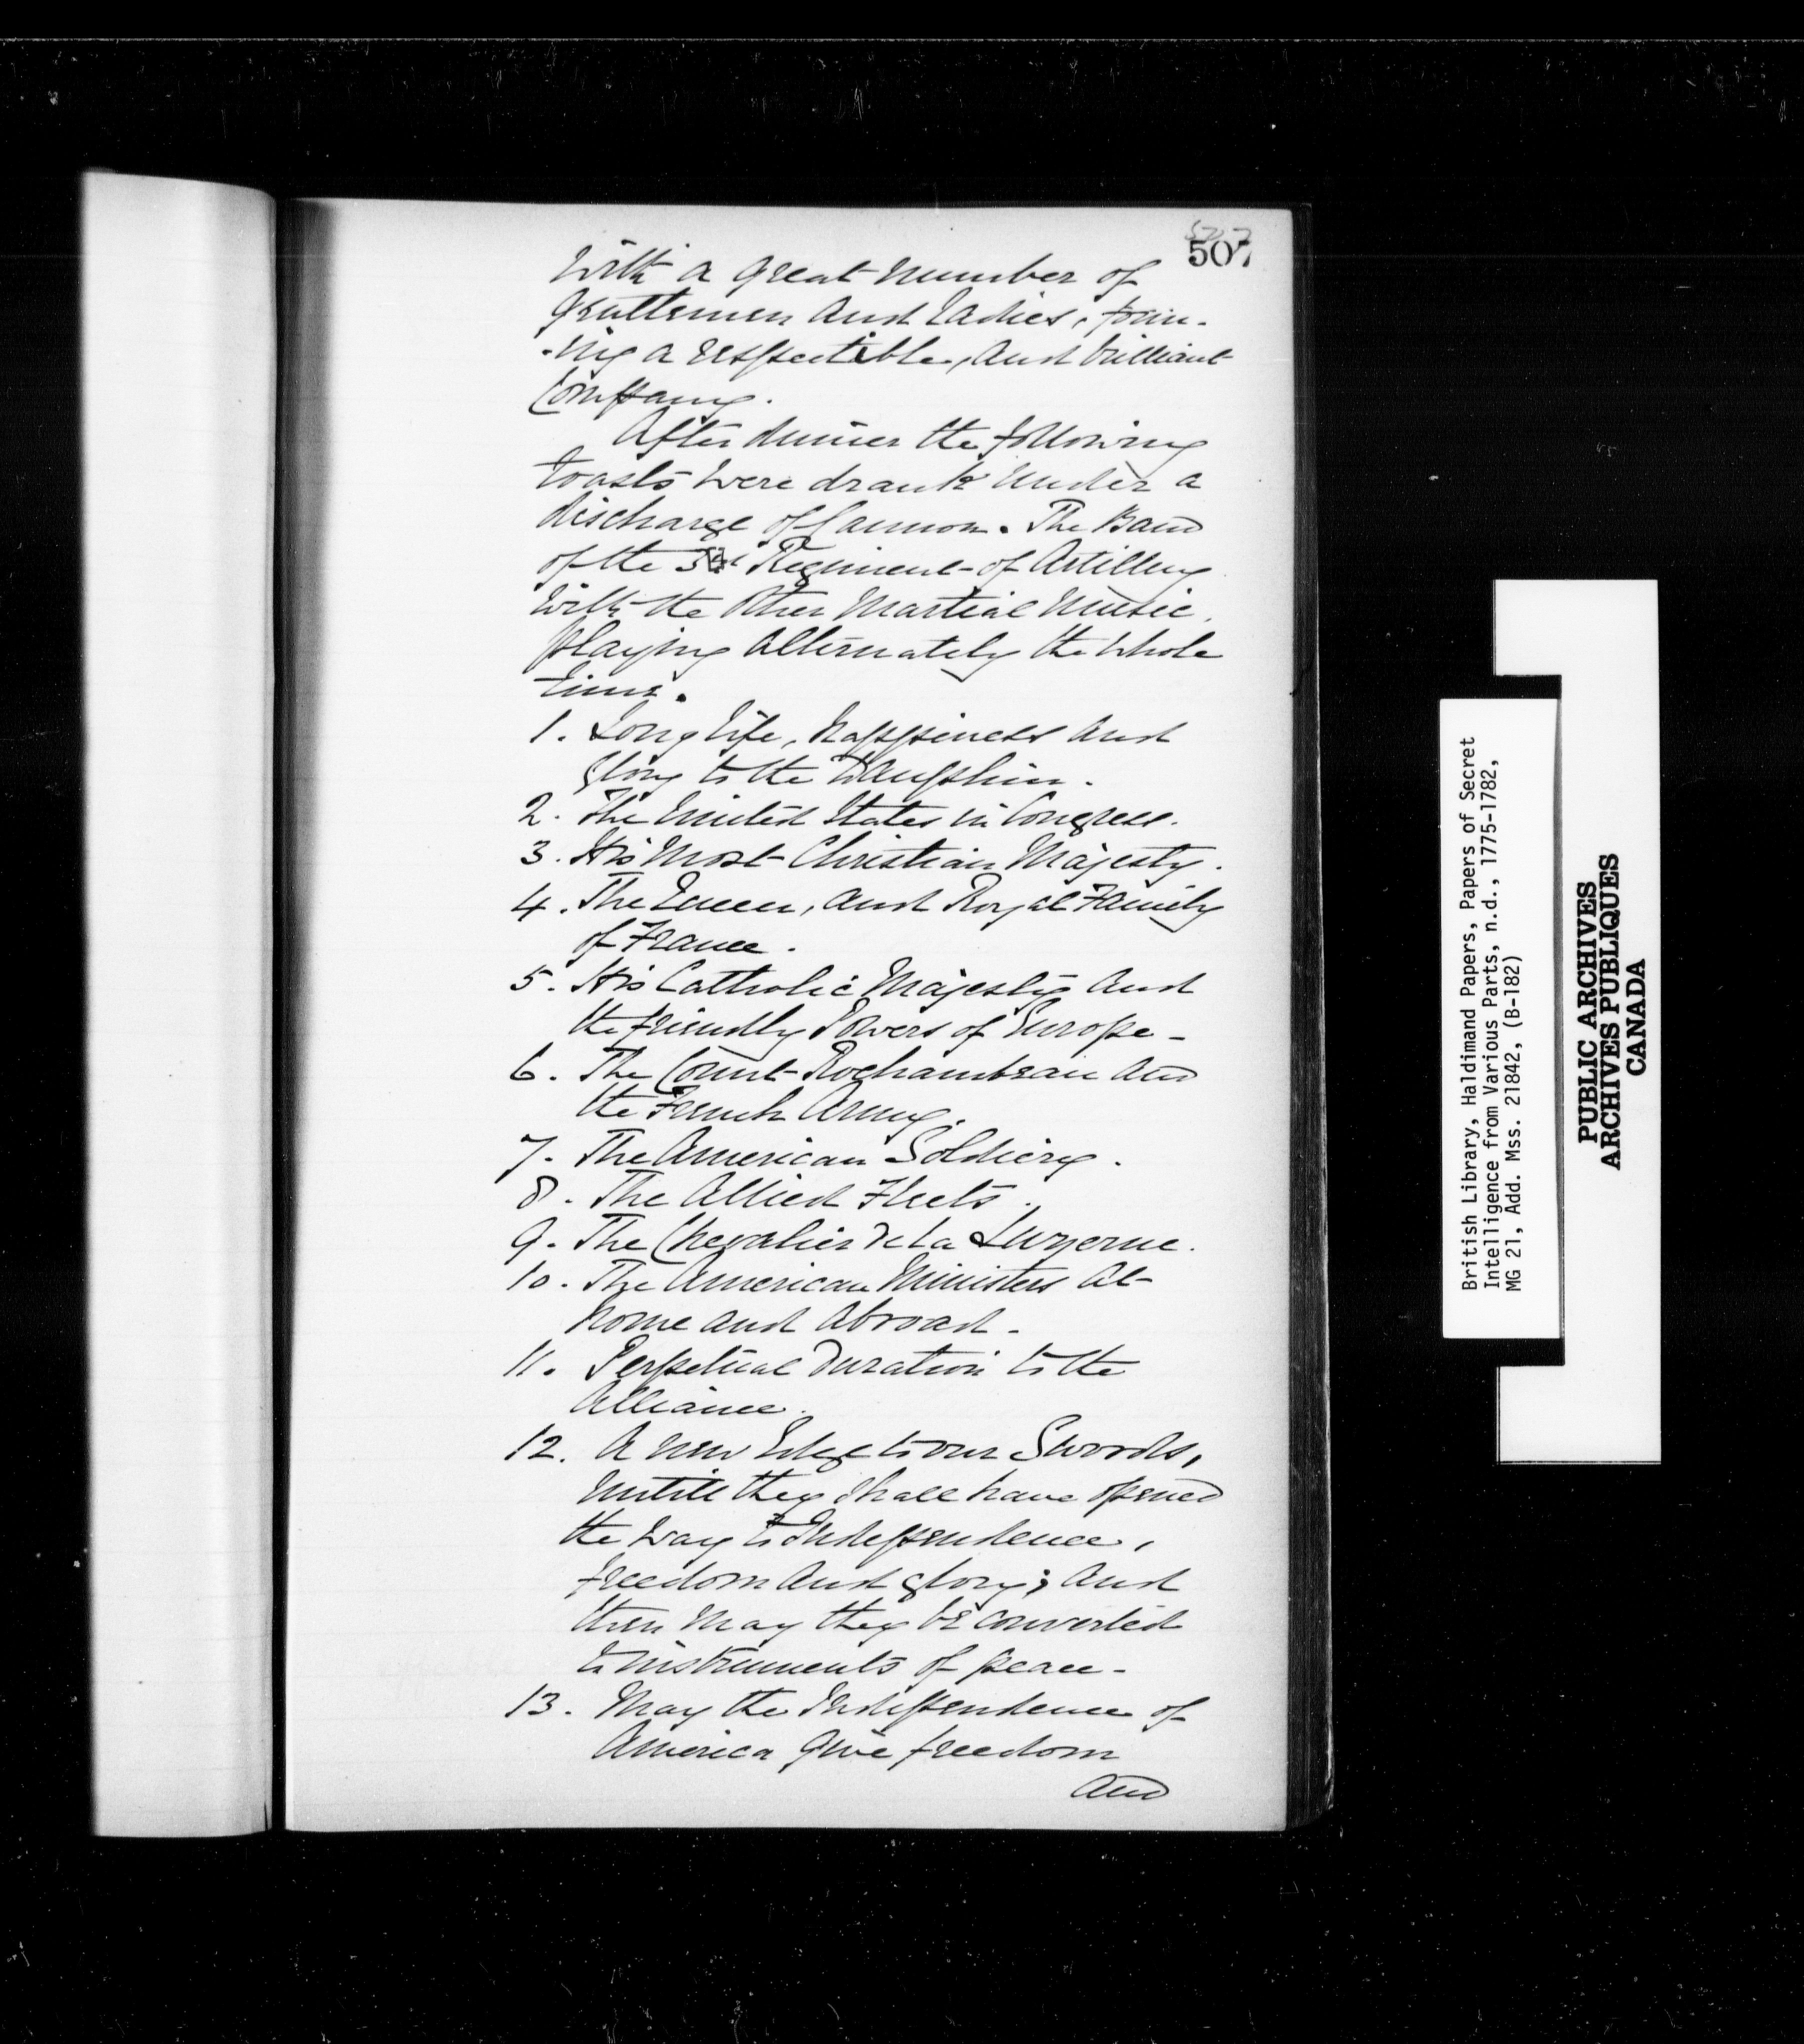 507
507
With a great number of
gentlemen and Ladies, form-
-ing a respectible, and brilliant
Company.
After dinner the following
toasts were drank under a
discharge of Cannon. The Band
of the Regiment of Artillery
With the other Martial Music,
playing alternately the whole
time.
1. Long life, happiness and
glory to the Dauphin.
2. The United States in Congress.
3. His Most Christian Majesty.
4. The Queen, and Royal Family
of France.
5. His Catholic Majesty and
the friendly Powers of Europe -
6. The Count Rochambeau and
the French Army.
7. The American Soldiery.
8. The Allied Fleets.
9. The Chevalier De La Luzerne.
10. The American Ministers at
home and abroad -
11. Perpetual Duration to the
Alliance.
12. A new Edge to our Swords,
untill they shall have opened
the way to Independence,
freedom and glory; and
then may they be converted
to instruments of peace -
13. May the Independence of
America give freedom
and
British Library, Haldimand Papers, Papers of Secret
Intelligence from Various Parts, n.d., 1775-1782,
MG 21, Add. Mss. 21842, (B-182)
PUBLIC ARCHIVES
ARCHIVES PUBLIQUES
CANADA